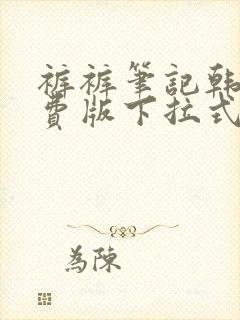 裤裤筆記韩
費版下拉式
為陳